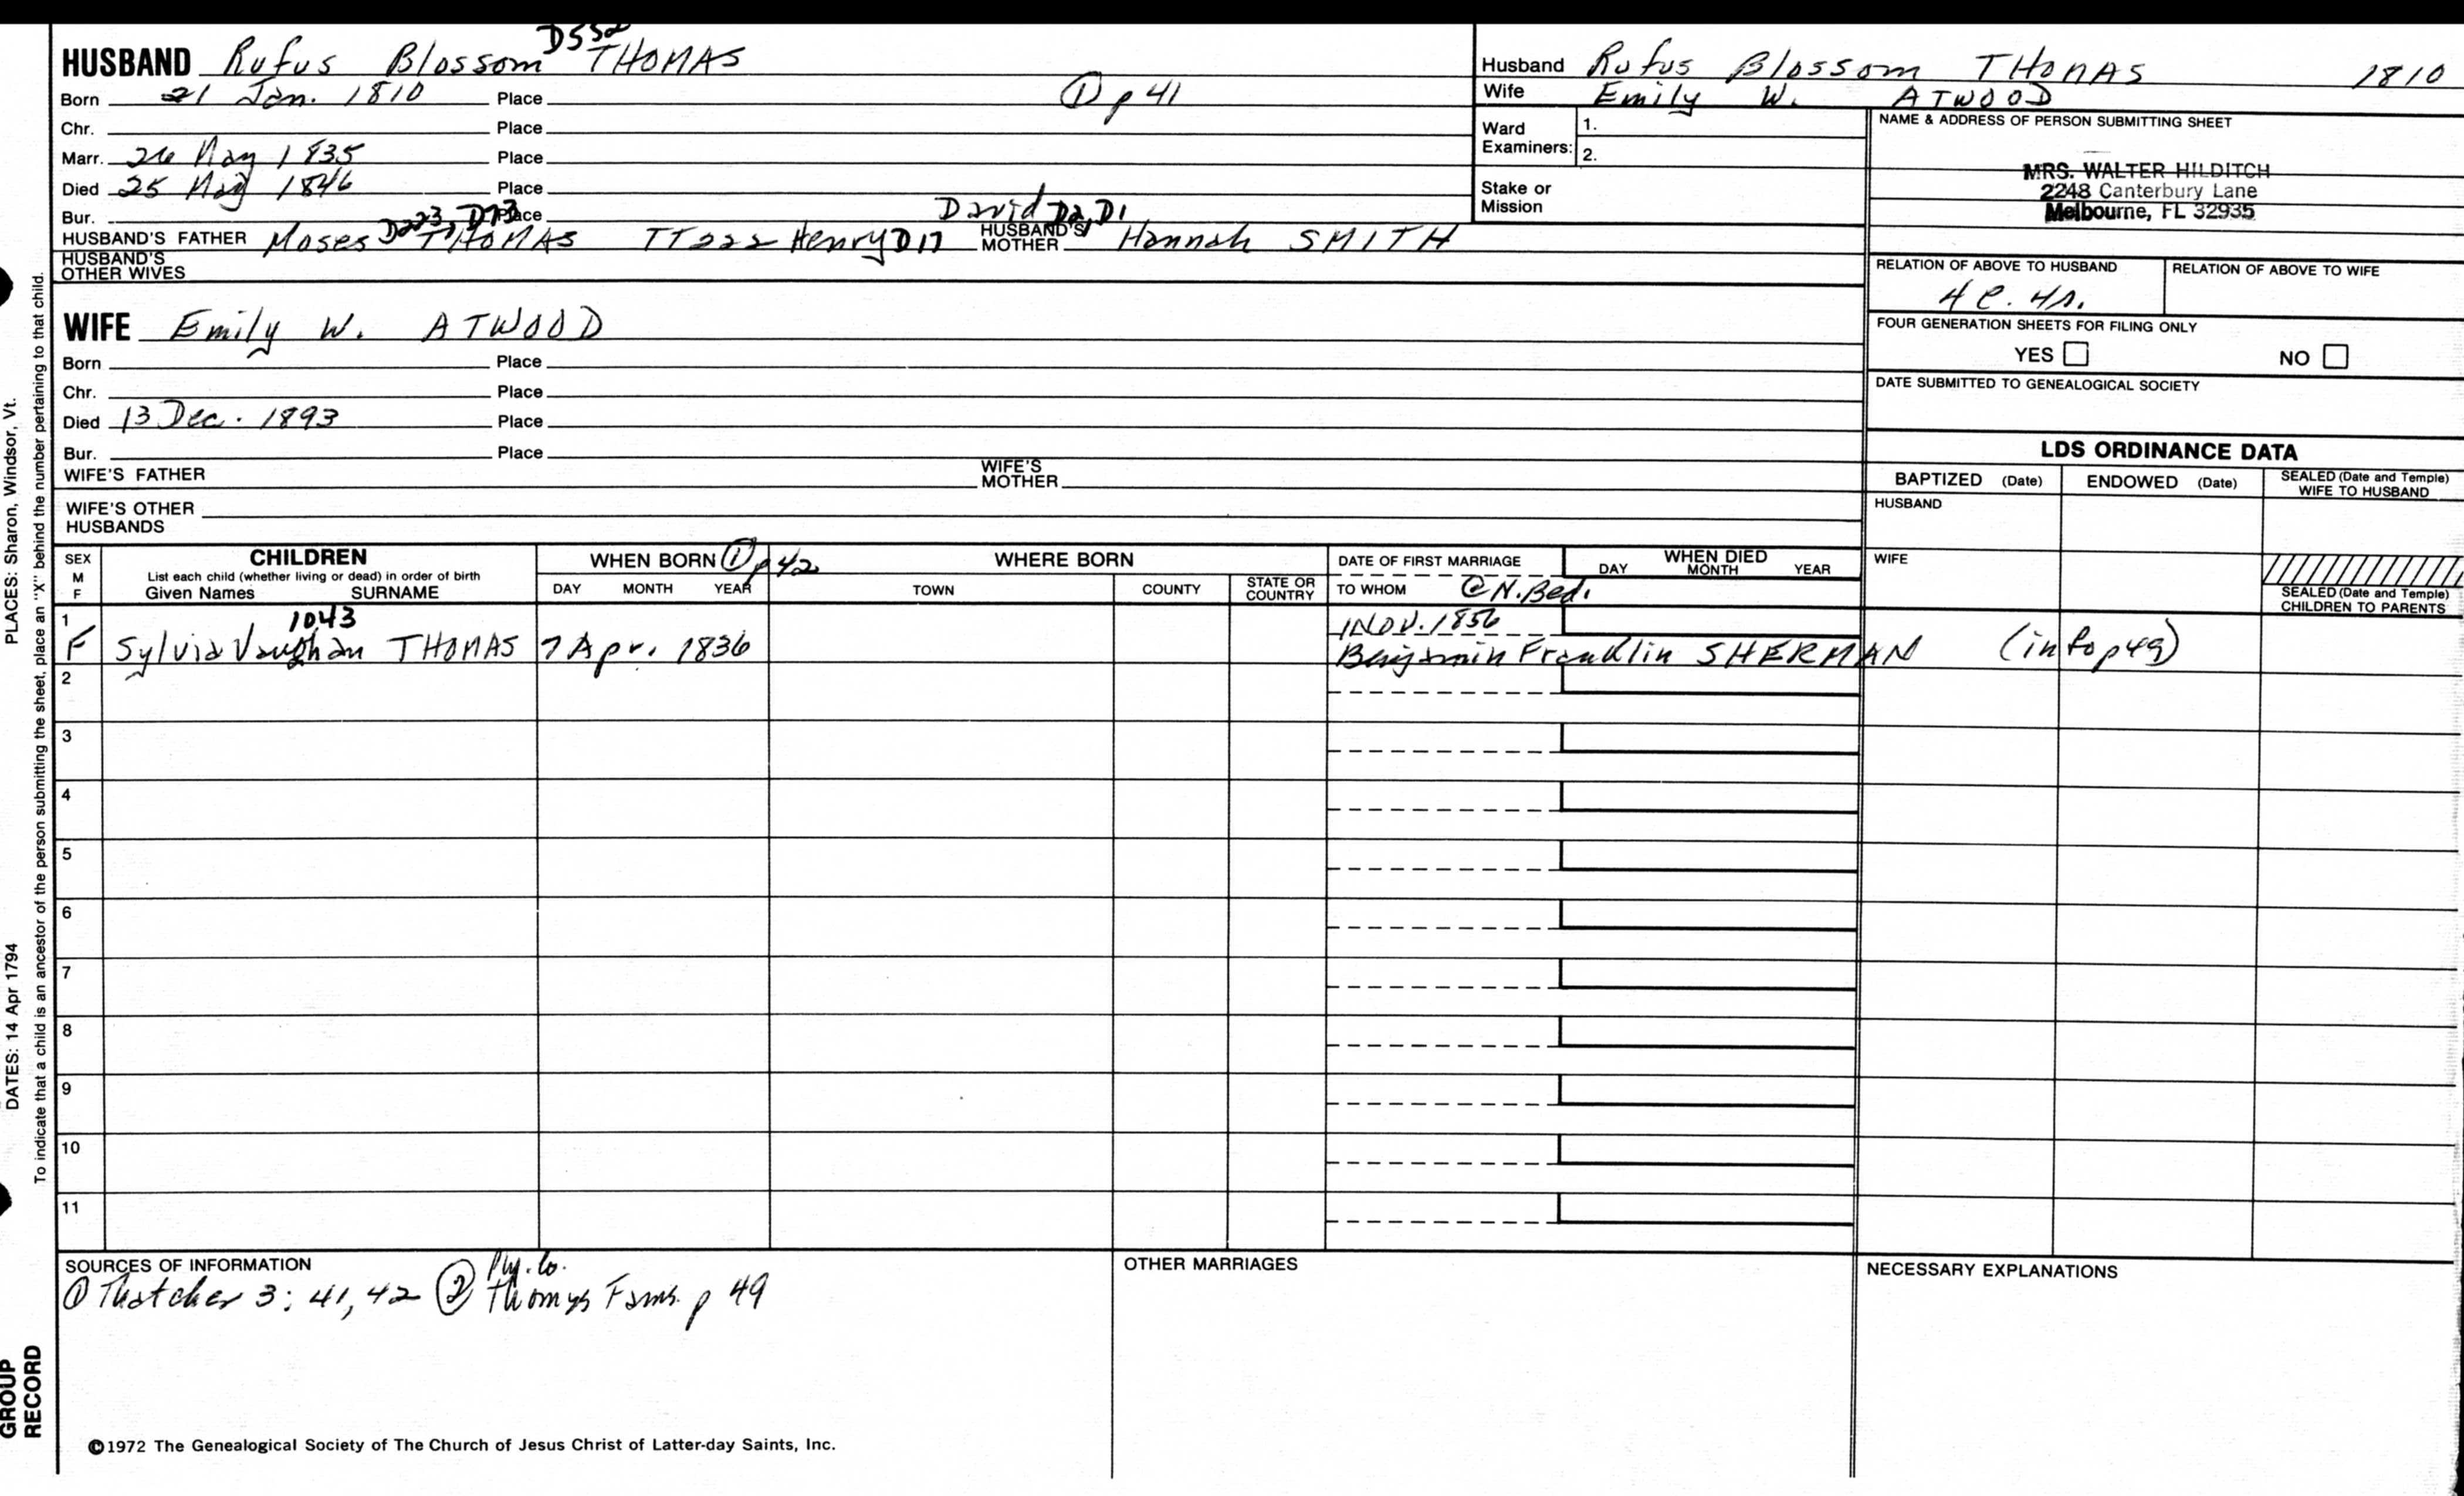 D552
HUSBAND Rufus Blossom THOMAS
Born 21 Jan. 1810 Place ① p 41
Chr. Place
Marr. 26 May 1835 Place
Died 25 May 1846 Place
Bur. Place David D2, D1
D223, D73
HUSBAND'S FATHER Moses THOMAS TT222 Henry D17 HUSBAND'S MOTHER Hannah SMITH
HUSBAND'S
OTHER WIVES
WIFE Emily W. ATWOOD
Born Place
Chr. Place
Died 13 Dec. 1893 Place
Bur. Place
WIFE'S FATHER WIFE'S MOTHER
WIFE'S OTHER
HUSBANDS
Husband Rufus Blossom THOMAS 1810
Wife Emily W. ATWOOD
Ward
Examiners:
1.
2.
Stake or
Mission
NAME & ADDRESS OF PERSON SUBMITTING SHEET
MRS. WALTER HILDITCH
2248 Canterbury Lane
Melbourne, FL 32935
RELATION OF ABOVE TO HUSBAND RELATION OF ABOVE TO WIFE
4 C. 4 r.
FOUR GENERATION SHEETS FOR FILING ONLY
YES NO
DATE SUBMITTED TO GENEALOGICAL SOCIETY
LDS ORDINANCE DATA
BAPTIZED (Date) ENDOWED (Date) SEALED (Date and Temple)
WIFE TO HUSBAND
HUSBAND
WIFE
SEALED (Date and Temple)
CHILDREN TO PARENTS
SEX
M
F
CHILDREN
List each child (whether living or dead) in order of birth
Given Names SURNAME
WHEN BORN ① p 42
DAY MONTH YEAR
WHERE BORN
TOWN COUNTY STATE OR
COUNTRY
DATE OF FIRST MARRIAGE
TO WHOM @ N. Bed.
WHEN DIED
DAY MONTH YEAR
1 1043 1 NOV. 1856
F Sylvia Vaughan THOMAS 7 Apr. 1836 Benjamin Franklin SHERMAN (info p49)
2
3
4
5
6
7
8
9
10
11
SOURCES OF INFORMATION
Ply. Co.
① Thatcher 3: 41, 42 ② Thomas Fams. p 49
OTHER MARRIAGES
NECESSARY EXPLANATIONS
©1972 The Genealogical Society of The Church of Jesus Christ of Latter-day Saints, Inc.
PLACES: Sharon, Windsor, Vt.
DATES: 14 Apr 1794
To indicate that a child is an ancestor of the person submitting the sheet, place an "X" behind the number pertaining to that child.
GROUP
RECORD